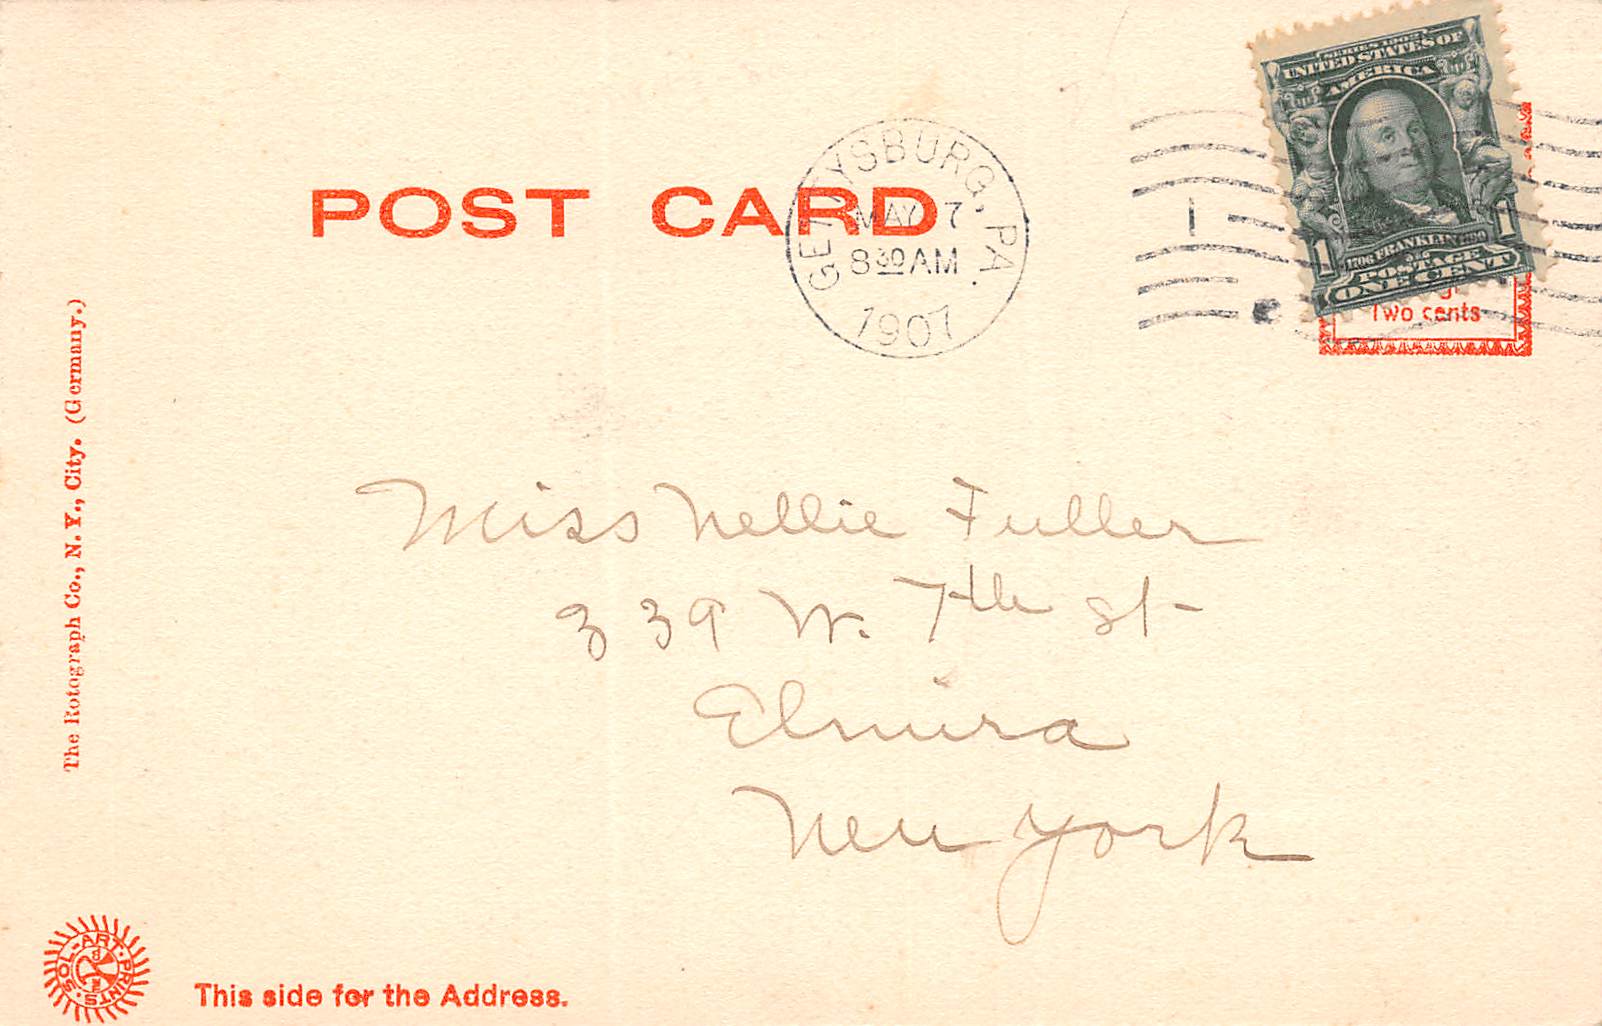 POST CARD
GETTYSBURG, PA.
MAY 7
8 30 AM
1907
1
SERIES 1902
UNITED STATES OF
AMERICA
1706 FRANKLIN 1790
POSTAGE
1 ONE CENT 1
Two cents
The Rotograph Co., N. Y., City. (Germany.)
Miss Nellie Fuller
339 W. 7th St
Elmira
New York
SOL-ART PRINTS
This side for the Address.